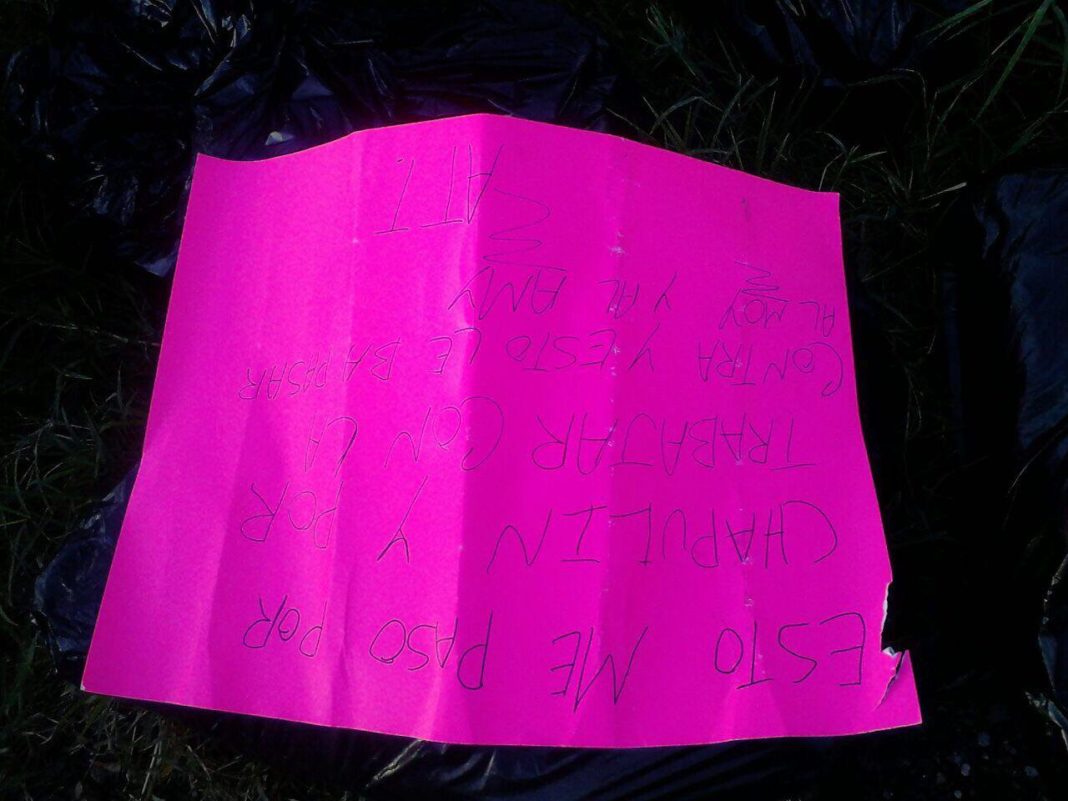 ESTO ME PASO POR
CHAPULIN Y POR
TRABAJAR CON LA
CONTRA Y ESTO LE BA PASAR
AL MOY Y AL AMY
ATT.